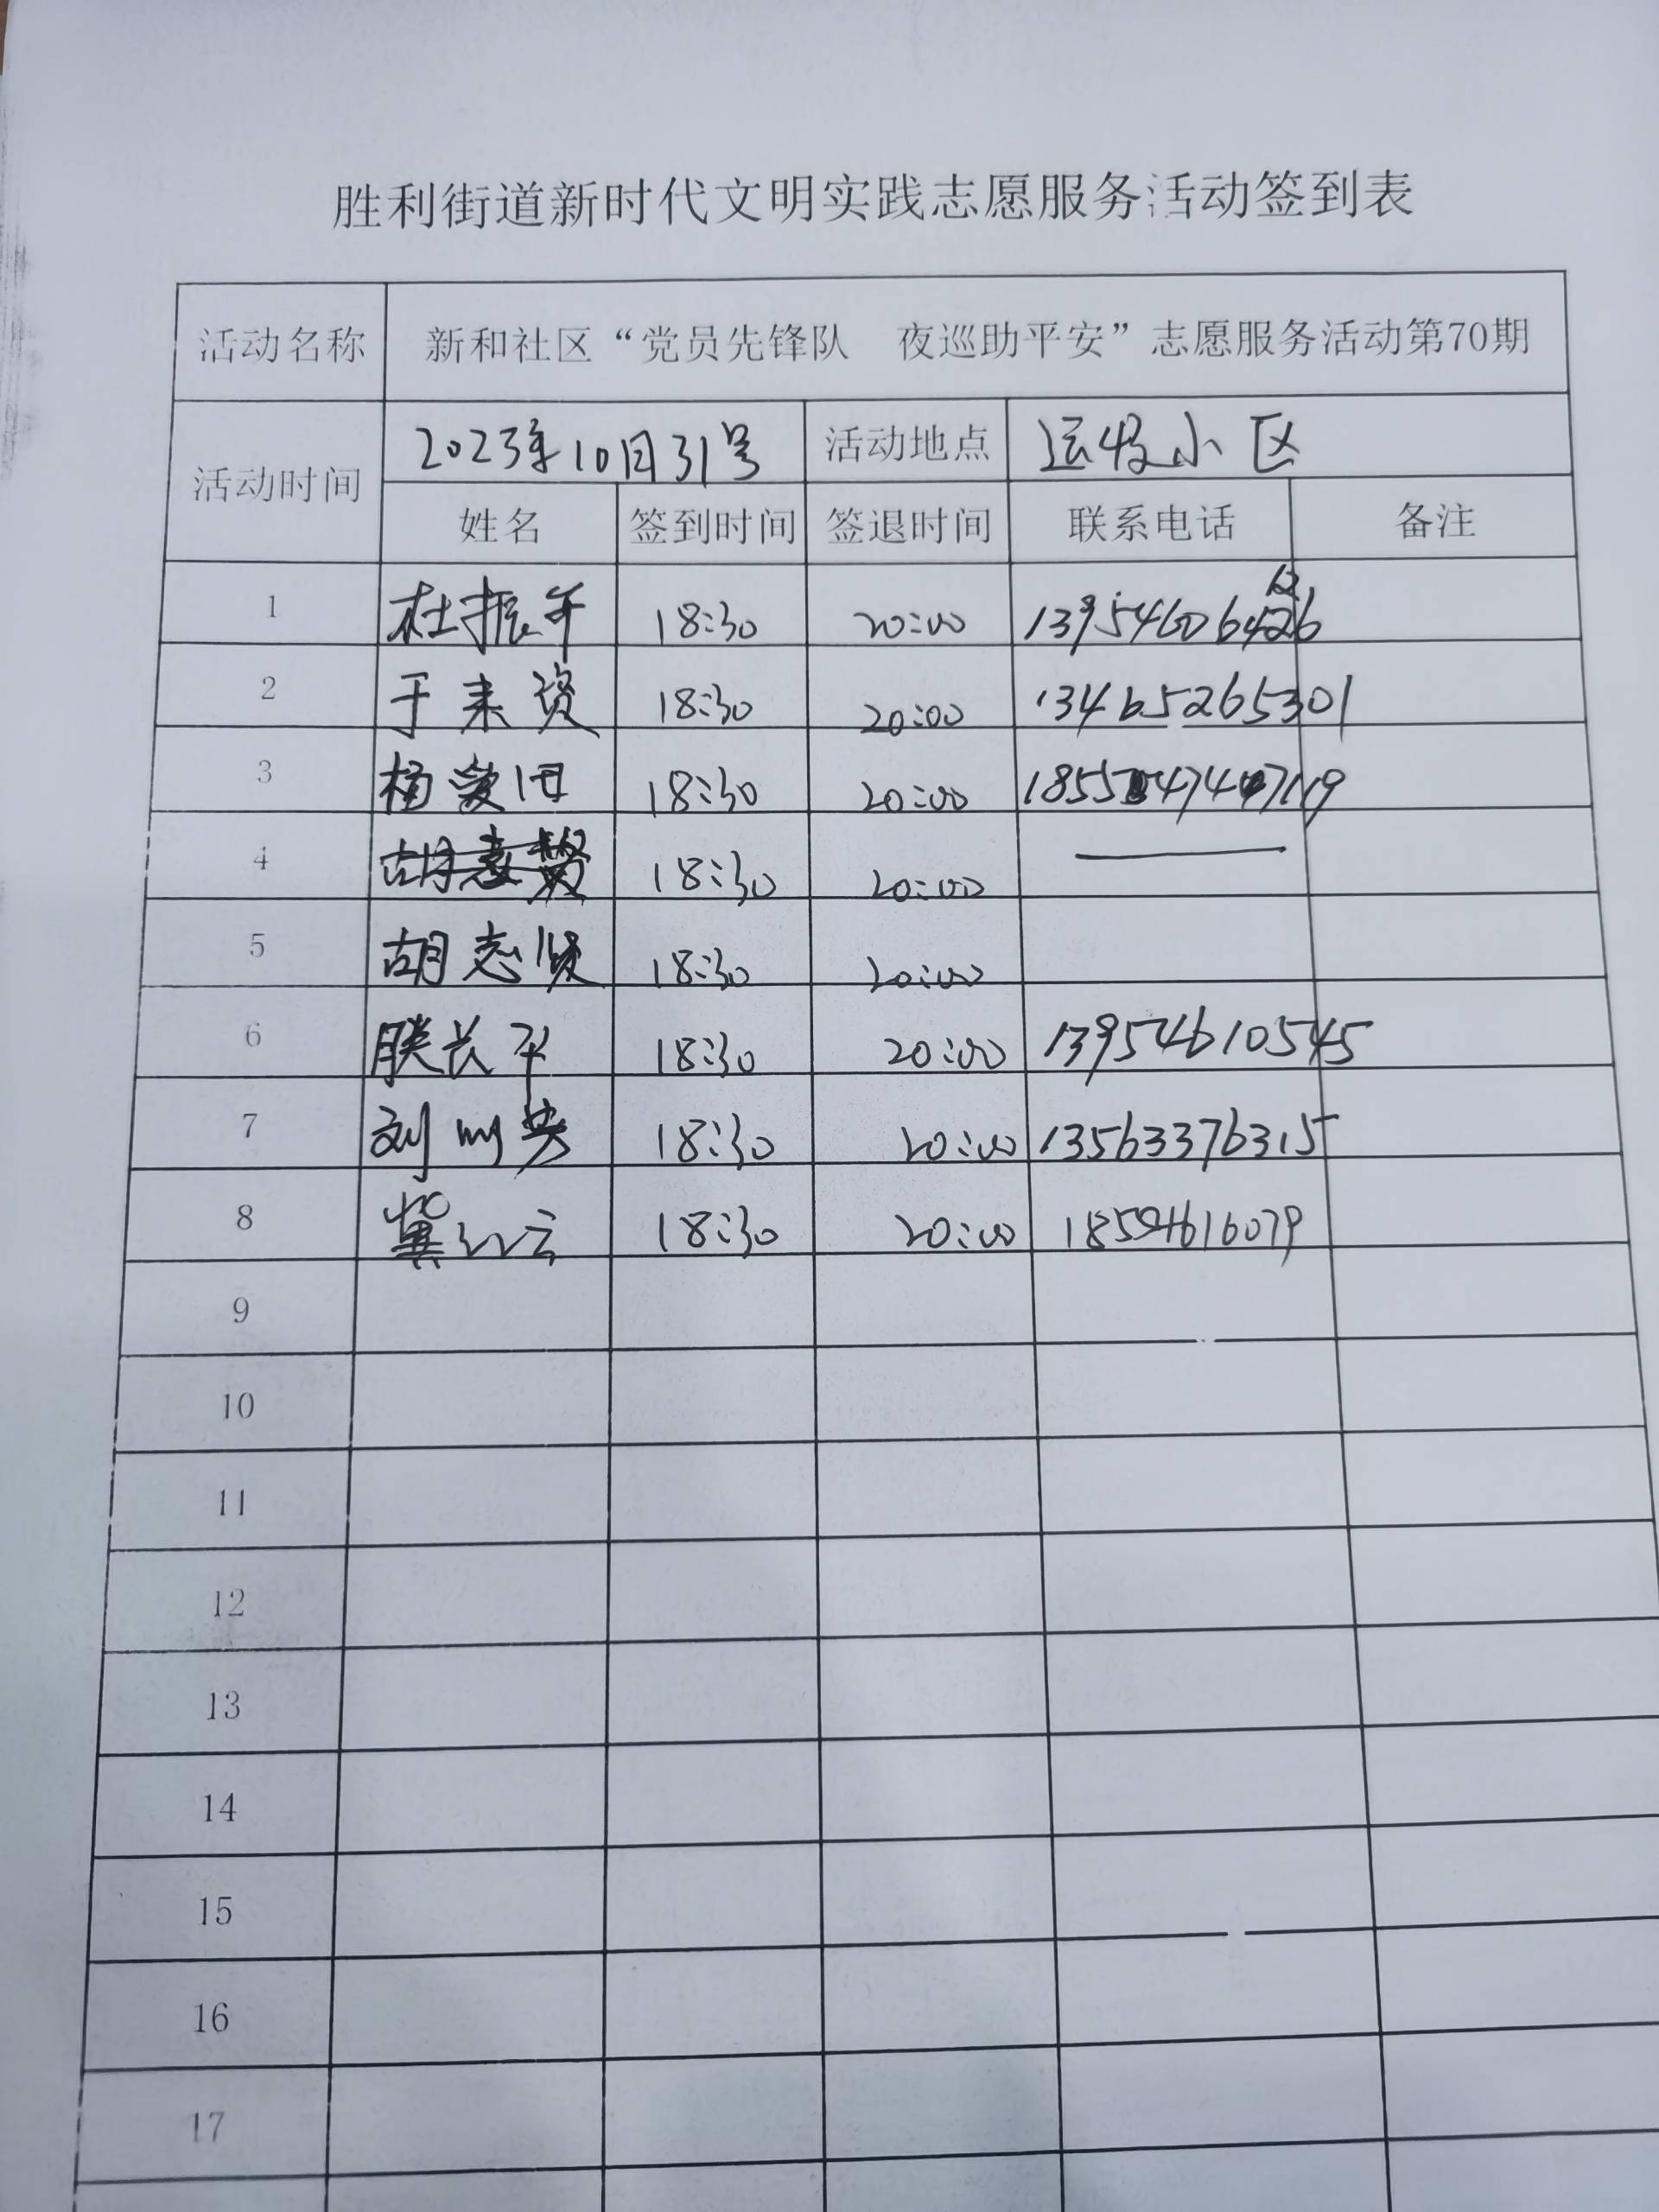 胜利街道新时代文明实践志愿服务活动签到表
活动名称 新和社区“党员先锋队 夜巡助平安”志愿服务活动第70期
活动时间 2023年10月31号 活动地点 运输小区
姓名 签到时间 签退时间 联系电话 备注
1 杜振午 18:30 20:00
2 于来资 18:30 20:00 13465265301
3 杨 18:30 20:00
4 18:30 20:00
5 胡志贤 18:30 20:00
6 滕长平 18:30 20:00 13954610545
7 刘 18:30 20:00 13563376315
8 冀红云 18:30 20:00 18554616079
9
10
11
12
13
14
15
16
17